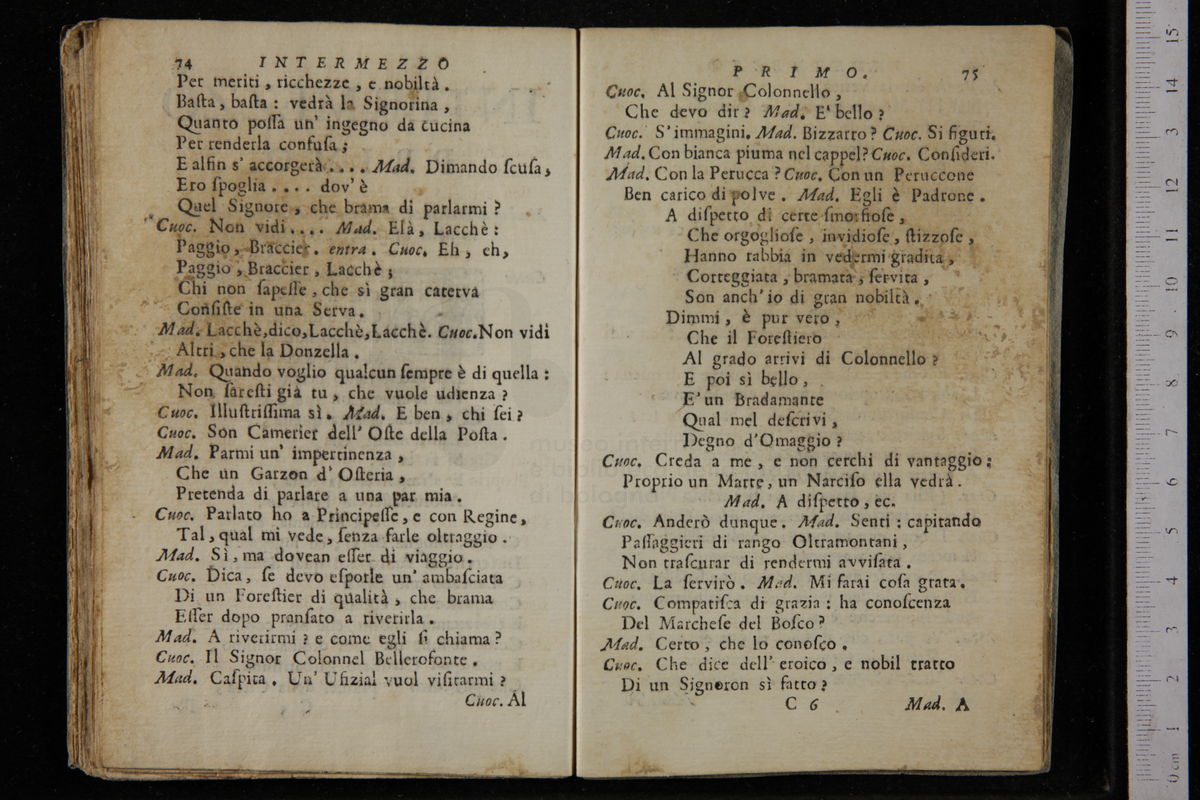 74 INTERMEZZO
Per meriti, ricchezze, e nobiltà.
Baſta, baſta: vedrà la Signorina,
Quanto poſſa un' ingegno da cucina
Per renderla confuſa;
E alfin s' accorgerà.... Mad. Dimando ſcuſa,
Ero ſpoglia.... dov' è
Quel Signore, che brama di parlarmi?
Cuoc. Non vidi.... Mad. Elà, Lacchè:
Paggio, Braccier. entra. Cuoc. Eh, eh,
Paggio, Braccier, Lacchè;
Chi non ſapeſſe, che sì gran caterva
Conſiſte in una Serva.
Mad. Lacchè,dico,Lacchè,Lacchè. Cuoc.Non vidi
Altri, che la Donzella.
Mad. Quando voglio qualcun ſempre è di quella:
Non ſareſti già tu, che vuole udienza?
Cuoc. Illuſtriſſima sì. Mad. E ben, chi ſei?
Cuoc. Son Camerier dell' Oſte della Poſta.
Mad. Parmi un' impertinenza,
Che un Garzon d' Oſteria,
Pretenda di parlare a una par mia.
Cuoc. Parlato ho a Principeſſe, e con Regine,
Tal, qual mi vede, ſenza farle oltraggio.
Mad. Sì, ma dovean eſſer di viaggio.
Cuoc. Dica, ſe devo eſporle un' ambaſciata
Di un Foreſtier di qualità, che brama
Eſſer dopo pranſato a riverirla.
Mad. A riverirmi? e come egli ſi chiama?
Cuoc. Il Signor Colonnel Bellerofonte.
Mad. Caſpita. Un' Ufizial vuol viſitarmi?
Cuoc. Al
PRIMO. 75
Cuoc. Al Signor Colonnello,
Che devo dir? Mad. E' bello?
Cuoc. S'immagini. Mad. Bizzarro? Cuoc. Si figuri.
Mad. Con bianca piuma nel cappel? Cuoc. Conſideri.
Mad. Con la Perucca? Cuoc. Con un Peruccone
Ben carico di polve. Mad. Egli è Padrone.
A diſpetto di certe ſmorfioſe,
Che orgoglioſe, invidioſe, ſtizzoſe,
Hanno rabbia in vedermi gradita,
Corteggiata, bramata, ſervita,
Son anch'io di gran nobiltà.
Dimmi, è pur vero,
Che il Foreſtiero
Al grado arrivi di Colonnello?
E poi sì bello,
E' un Bradamante
Qual mel deſcrivi,
Degno d'Omaggio?
Cuoc. Creda a me, e non cerchi di vantaggio;
Proprio un Marte, un Narciſo ella vedrà.
Mad. A diſpetto, ec.
Cuoc. Anderò dunque. Mad. Senti: capitando
Paſſaggieri di rango Oltramontani,
Non traſcurar di rendermi avviſata.
Cuoc. La ſervirò. Mad. Mi farai coſa grata.
Cuoc. Compatiſca di grazia: ha conoſcenza
Del Marcheſe del Boſco?
Mad. Certo, che lo conoſco.
Cuoc. Che dice dell' eroico, e nobil tratto
Di un Signoron sì fatto?
C 6 Mad. A